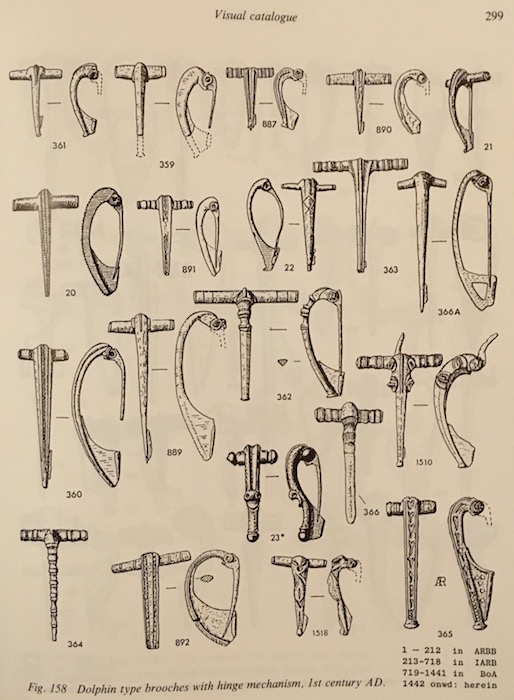 Visual catalogue
299
361
359
887
890
21
20
891
22
363
366A
362
889
360
1510
366
23*
364
892
1518
ÆR
365
1 — 212 in ARBB
213-718 in IARB
719-1441 in BoA
1442 onwd: herein
Fig. 158 Dolphin type brooches with hinge mechanism, 1st century AD.